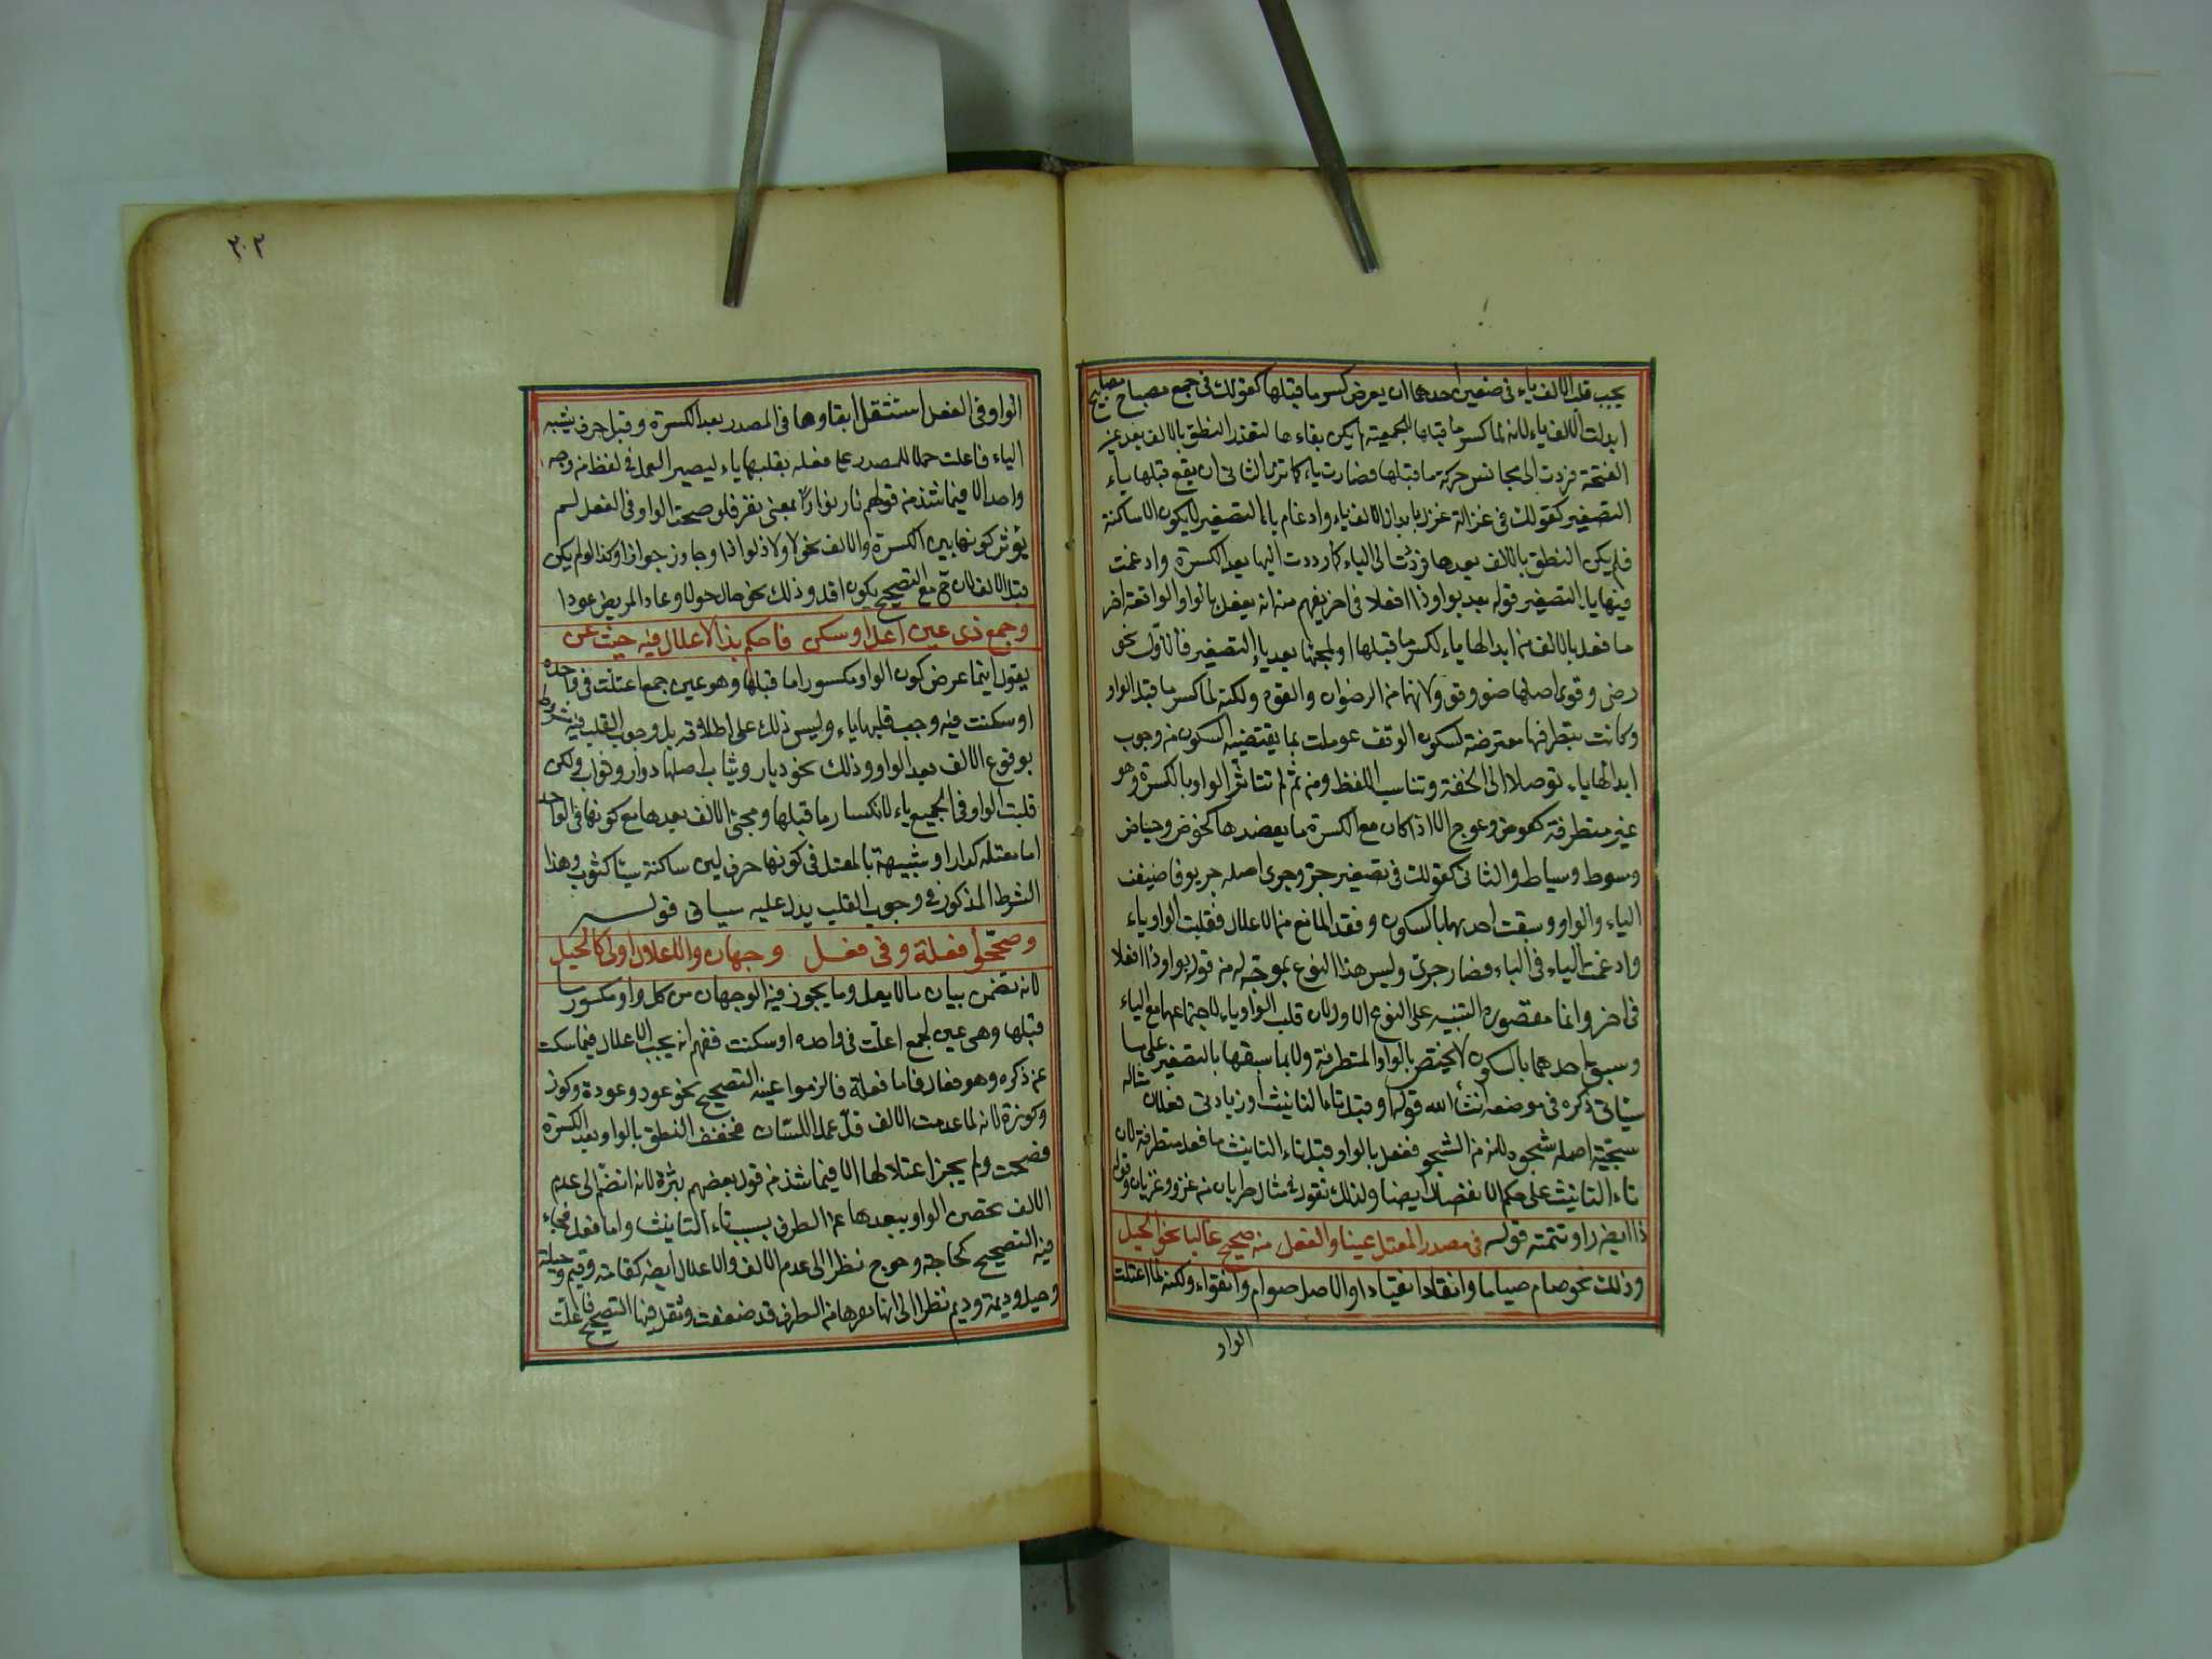 يجب قلب الالف ياء في موضعين احدهما ان يعرض كسر ما قبلها كقولك في جمع مصباح مصابيح
ابدلت الالف ياء لانه لما كسر ما قبلها للجمعية لم يكن بقاءها لتعذر النطق بالالف بعد غير
الفتحة فردت الى مجانس حركة ما قبلها فصارت ياء كما ترى الثاني ان يقع قبلها ياء
التصغير كقولك في غزالة غزيل بابدال الالف ياء وادغام ياء التصغير لا يكون الا ساكنة
فلم يكن النطق بالالف بعدها فردت الى الياء كما ردت اليها بعد الكسرة وادغمت
فيها ياء التصغير قوله بعد بواو ذا افعلا في اخر يفهم منه انه يفعل بالواو الواقعة اخر
ما فعل بالالف من ابدالها ياء لكسر ما قبلها او لمجئها بعد ياء التصغير فالاول نحو
رضي وقوي اصلهما رضو وقوو لانهما من الرضوان والقوة ولكنه لما كسر ما قبل الواو
وكانت بتطرفها معترضة لسكون الوقف عوملت بما يقتضيه السكون من وجوب
ابدالها ياء توصلا الى الخفة وتناسب اللفظ ومن ثم لم تتاثر الواو بالكسرة وهو
غير متطرفة كعوض وعوج الا اذا كان مع الكسرة ما يعضدها كحوض وحياض
وسوط وسياط والثاني كقولك في تصغير جرو جري اصله جريو فاضيف
الياء والواو وسبقت احديهما بالسكون وفقد المانع من الاعلال فقلبت الواو ياء
وادغمت الياء في الياء فصار جري وليس هذا النوع بموجه له من قوله بواو ذا افعلا
في اخر وانما مقصوره التنبيه على النوع الاول لان قلب الواو ياء لاجتماعها مع الياء
وسبق احدهما بالسكون لا يختص بالواو المتطرفة ولا بما سبقها بالتصغير على ما
سياتي ذكره في موضعه انشأ الله قوله او قبل تا التانيث او زيادتي فعلان مثاله
شجية اصله شجوة لانه من الشجو ففعل بالواو قبل تاء التانيث ما فعل متطرفة لان
تاء التانيث على حكم الانفصال ايضا ولذلك نقول في مثال ظربان من غزو غزيان وقوله
ذا ايضا راوا تتمته قوله في مصدر المعتل عينا والفعل منه صحيح غالبا نحو الحيل
وذلك نحو صام صياما وانقاد انقيادا والاصل صوام وانقواد ولكنه لما اعتلت
الواو
٢٠٢
الواو في الفعل استثقل ابقاوها في المصدر بعد الكسرة وقبل حرف يشبه
الياء فاعلت حملا للمصدر على فعله بقلبها ياء ليصير العمل في اللفظ من وجه
واحد الا فيما شذ من قولهم نار نوارا بمعنى نفر فلو صحت الواو في الفعل لم
يؤثر كونها بين الكسرة والالف نحو لاوذ لواذا وجاوز جوازا وكذا لو لم يكن
قبل الالف لان ح مع التصحيح يكون اقل وذلك نحو حال حولا وعاد المريض عودا
وجمع ذي عين اعل او سكن فاحكم بذا الاعلال فيه حيث عن
يقول ايما عرض كون الواو مكسورا ما قبلها وهو عين جمع اعتلت في واحده
او سكنت فيه وجب قلبها ياء وليس ذلك على اطلاقه بل وجوب القلب فيه مشروط
بوقوع الالف بعد الواو وذلك نحو ديار وثياب اصلهما دوار وثواب ولكن
قلبت الواو في الجميع ياء لانكسار ما قبلها ومجئ الالف بعدها مع كونها في الواحد
اما معتله كدار او شبيهة بالمعتل في كونها حرف لين ساكنة ميتا كثوب وهذا
الشرط المذكور في وجوب القلب يدل عليه سياتي قوله
وصححوا فعلة وفي فعل وجهان والاعلال اولى كالحيل
لانه تضمن بيان ما لا يعل وما يجوز فيه الوجهان من كل واو مكسور ما
قبلها وهي عين لجمع اعلت في واحده او سكنت ففهم انه يجب الاعلال فيما سكت
عن ذكره وهو فعال فاما فعلة فالزموا عينه التصحيح نحو عود وعودة وكوز
وكوزة لانه لما عدمت الالف قل عمل اللسان فخفف النطق بالواو بعد الكسرة
فصحت ولم يجز اعتلالها الا فيما شذ من قول بعضهم ثيرة لانه انضم الى عدم
الالف تحصن الواو ببعدها عن الطرف بسبب تاء التانيث واما فعل فجاء
فيه التصحيح كحاجة وحوج نظرا الى عدم الالف والاعلال ايضا كقامة وقيم وحيلة
وحيل وديمة وديم نظرا الى انها بقربها من الطرف قد ضعفت وثقل فيها التصحيح فاعلت